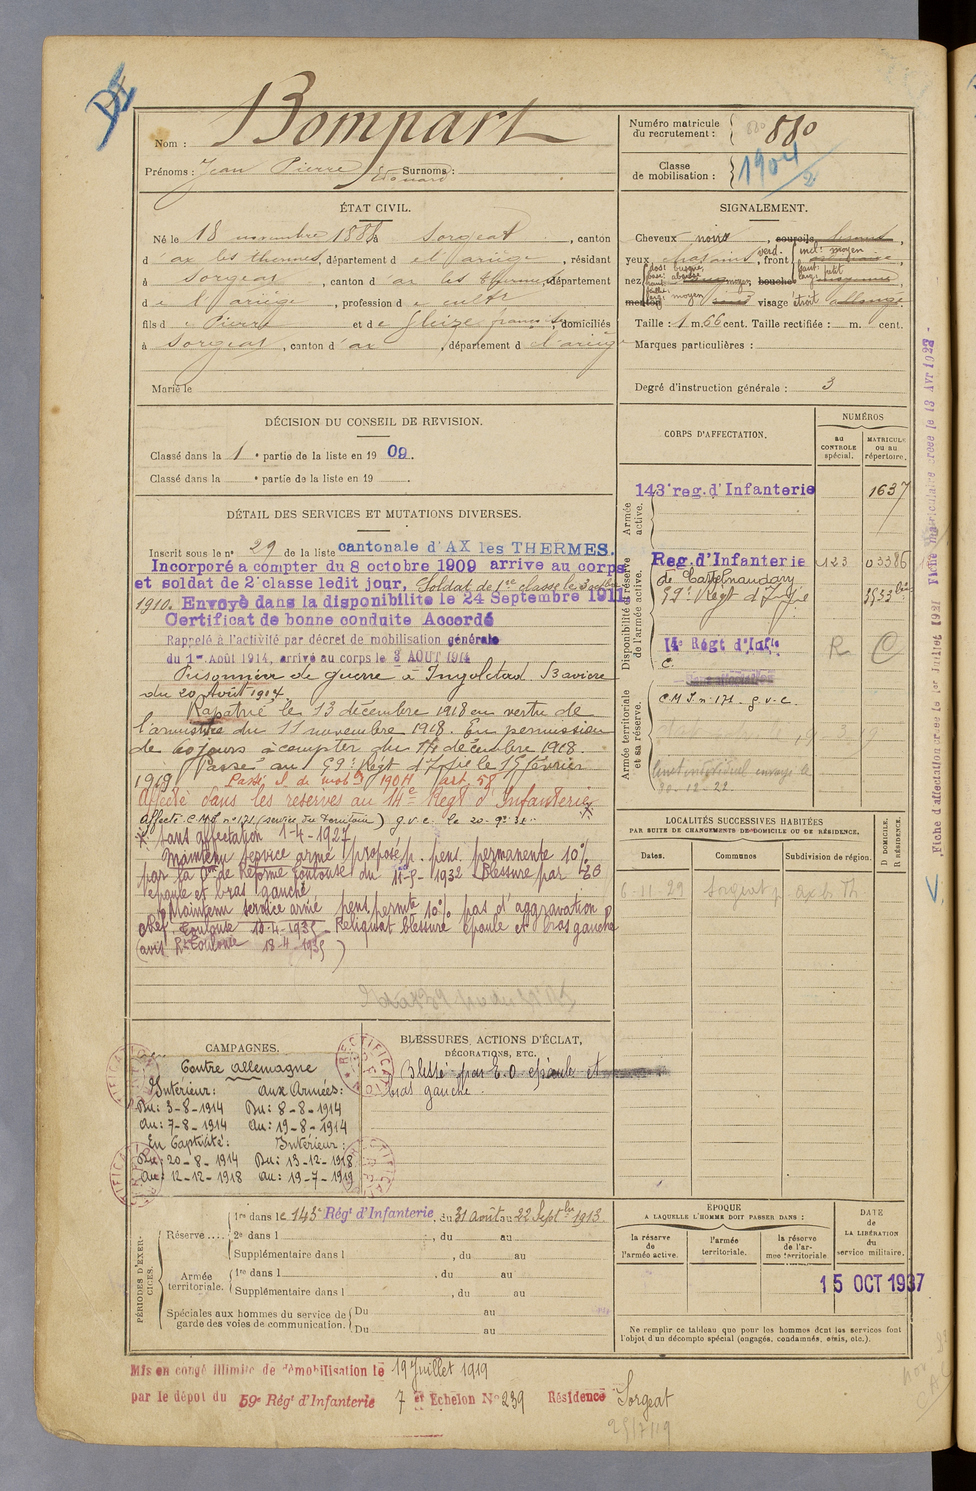 Nom : Bompart
Prénoms : Jean Pierre Edouard Surnoms :
Numéro matricule du recrutement : 880
Classe de mobilisation : 1904/2
ÉTAT CIVIL.
Né le 18 novembre 188 à Sorgeat, canton
d'ax les thermes, département d el ariège, résidant
à Sorgeat, canton d ax les thermes, département
d e l'ariège, profession d e cultr
fils d e Pierre et d e Gleizes françoise, domiciliés
à Sorgeat, canton d'ax, département d el'ariège
Marié le
SIGNALEMENT.
Cheveux noirs, sourcils
yeux chatains verd., front incl: moyen
nez dos: busqué moyen, bouche
menton visage étroit allongé
Taille : 1 m. 66 cent. Taille rectifiée : m. cent.
Marques particulières :
Degré d'instruction générale : 3
DÉCISION DU CONSEIL DE REVISION.
Classé dans la 1 e partie de la liste en 1909.
Classé dans la e partie de la liste en 19
CORPS D'AFFECTATION.
NUMÉROS
au CONTROLE spécial.
MATRICULE ou au répertoire.
Armée active.
143e reg. d'Infanterie 1637
Disponibilité et réserve de l'armée active.
Reg. d'Infanterie de Castelnaudary 1123 03386
59e Régt d'Infie 3533 bis
14e Régt d'Infie R C
Sans affectation
Armée territoriale et sa réserve.
C.M.I. n° 171. g.v.c.
20-12-22.
DÉTAIL DES SERVICES ET MUTATIONS DIVERSES.
Inscrit sous le n° 29 de la liste cantonale d'AX les THERMES.
Incorporé à compter du 8 octobre 1909 arrive au corps
et soldat de 2e classe ledit jour, Soldat de 1re classe le 3 octbre
1910. Envoyé dans la disponibilité le 24 Septembre 1911
Certificat de bonne conduite Accordé
Rappelé à l'activité par décret de mobilisation générale
du 1er Août 1914, arrivé au corps le 3 AOUT 1914
Prisonnier de guerre à Ingolstad Bavière
du 20 Août 1914.
Rapatrié le 13 décembre 1918 en vertu de
l'armistice du 11 novembre 1918. En permission
de 60 jours à compter du 14 décembre 1918.
Passé au 59e Régt d'Infie le 15 février
1919 Passé cl. de mob 1904 art. 58
Affecté dans les réserves au 14e Régt d'Infanterie
affecté C.M.I. n° 171 (service du Territoire) g.v.c. le 20-9-30
Sans affectation 1-4-1927
Maintenu service armé proposé p. pens. permanente 10%
par la Com de Réforme Toulouse du 11-5-1932 Blessure par EO
épaule et bras gauche
Maintenu service armé pens. permte 10% pas d'aggravation p.
cRéf. Toulouse 18-4-1935 - Reliquat blessure épaule et bras gauche
(avis R Toulouse 18-4-1935)
LOCALITÉS SUCCESSIVES HABITÉES
PAR SUITE DE CHANGEMENTS DE DOMICILE OU DE RÉSIDENCE.
Dates. Communes Subdivision de région.
D DOMICILE, R RÉSIDENCE.
6-11-29 Sorgeat ax les Th
Fiche d'affectation créée le 1er Juillet 1921 Fiche matriculaire créée le 13 Avr 1922
CAMPAGNES.
Contre allemagne
Intérieur: aux Armées:
Du: 3-8-1914 Du: 8-8-1914
Au: 7-8-1914 Au: 19-8-1914
En Captivité: Intérieur:
Du: 20-8-1914 Du: 13-12-1918
Au: 12-12-1918 Au: 19-7-1919
BLESSURES, ACTIONS D'ÉCLAT,
DÉCORATIONS, ETC.
Blessé par E.O. épaule et
bras gauche
PÉRIODES D'EXERCICES.
Réserve ....
1re dans le 143e Régt d'Infanterie, du 31 août au 22 Septbre 1913.
2e dans l , du au
Supplémentaire dans l , du au
Armée territoriale.
1re dans l , du au
Supplémentaire dans l , du au
Spéciales aux hommes du service de garde des voies de communication.
Du au
Du au
EPOQUE
A LAQUELLE L'HOMME DOIT PASSER DANS :
la réserve de l'armée active.
l'armée territoriale.
la réserve de l'armée territoriale
DATE de LA LIBÉRATION du service militaire.
15 OCT 1937
Ne remplir ce tableau que pour les hommes dont les services font
l'objet d'un décompte spécial (engagés, condamnés, omis, etc.).
Mis en congé illimité de démobilisation le 19 Juillet 1919
par le dépôt du 59e Régt d'Infanterie 7 et Echelon N° 239 Résidence Sorgeat
25/7/19